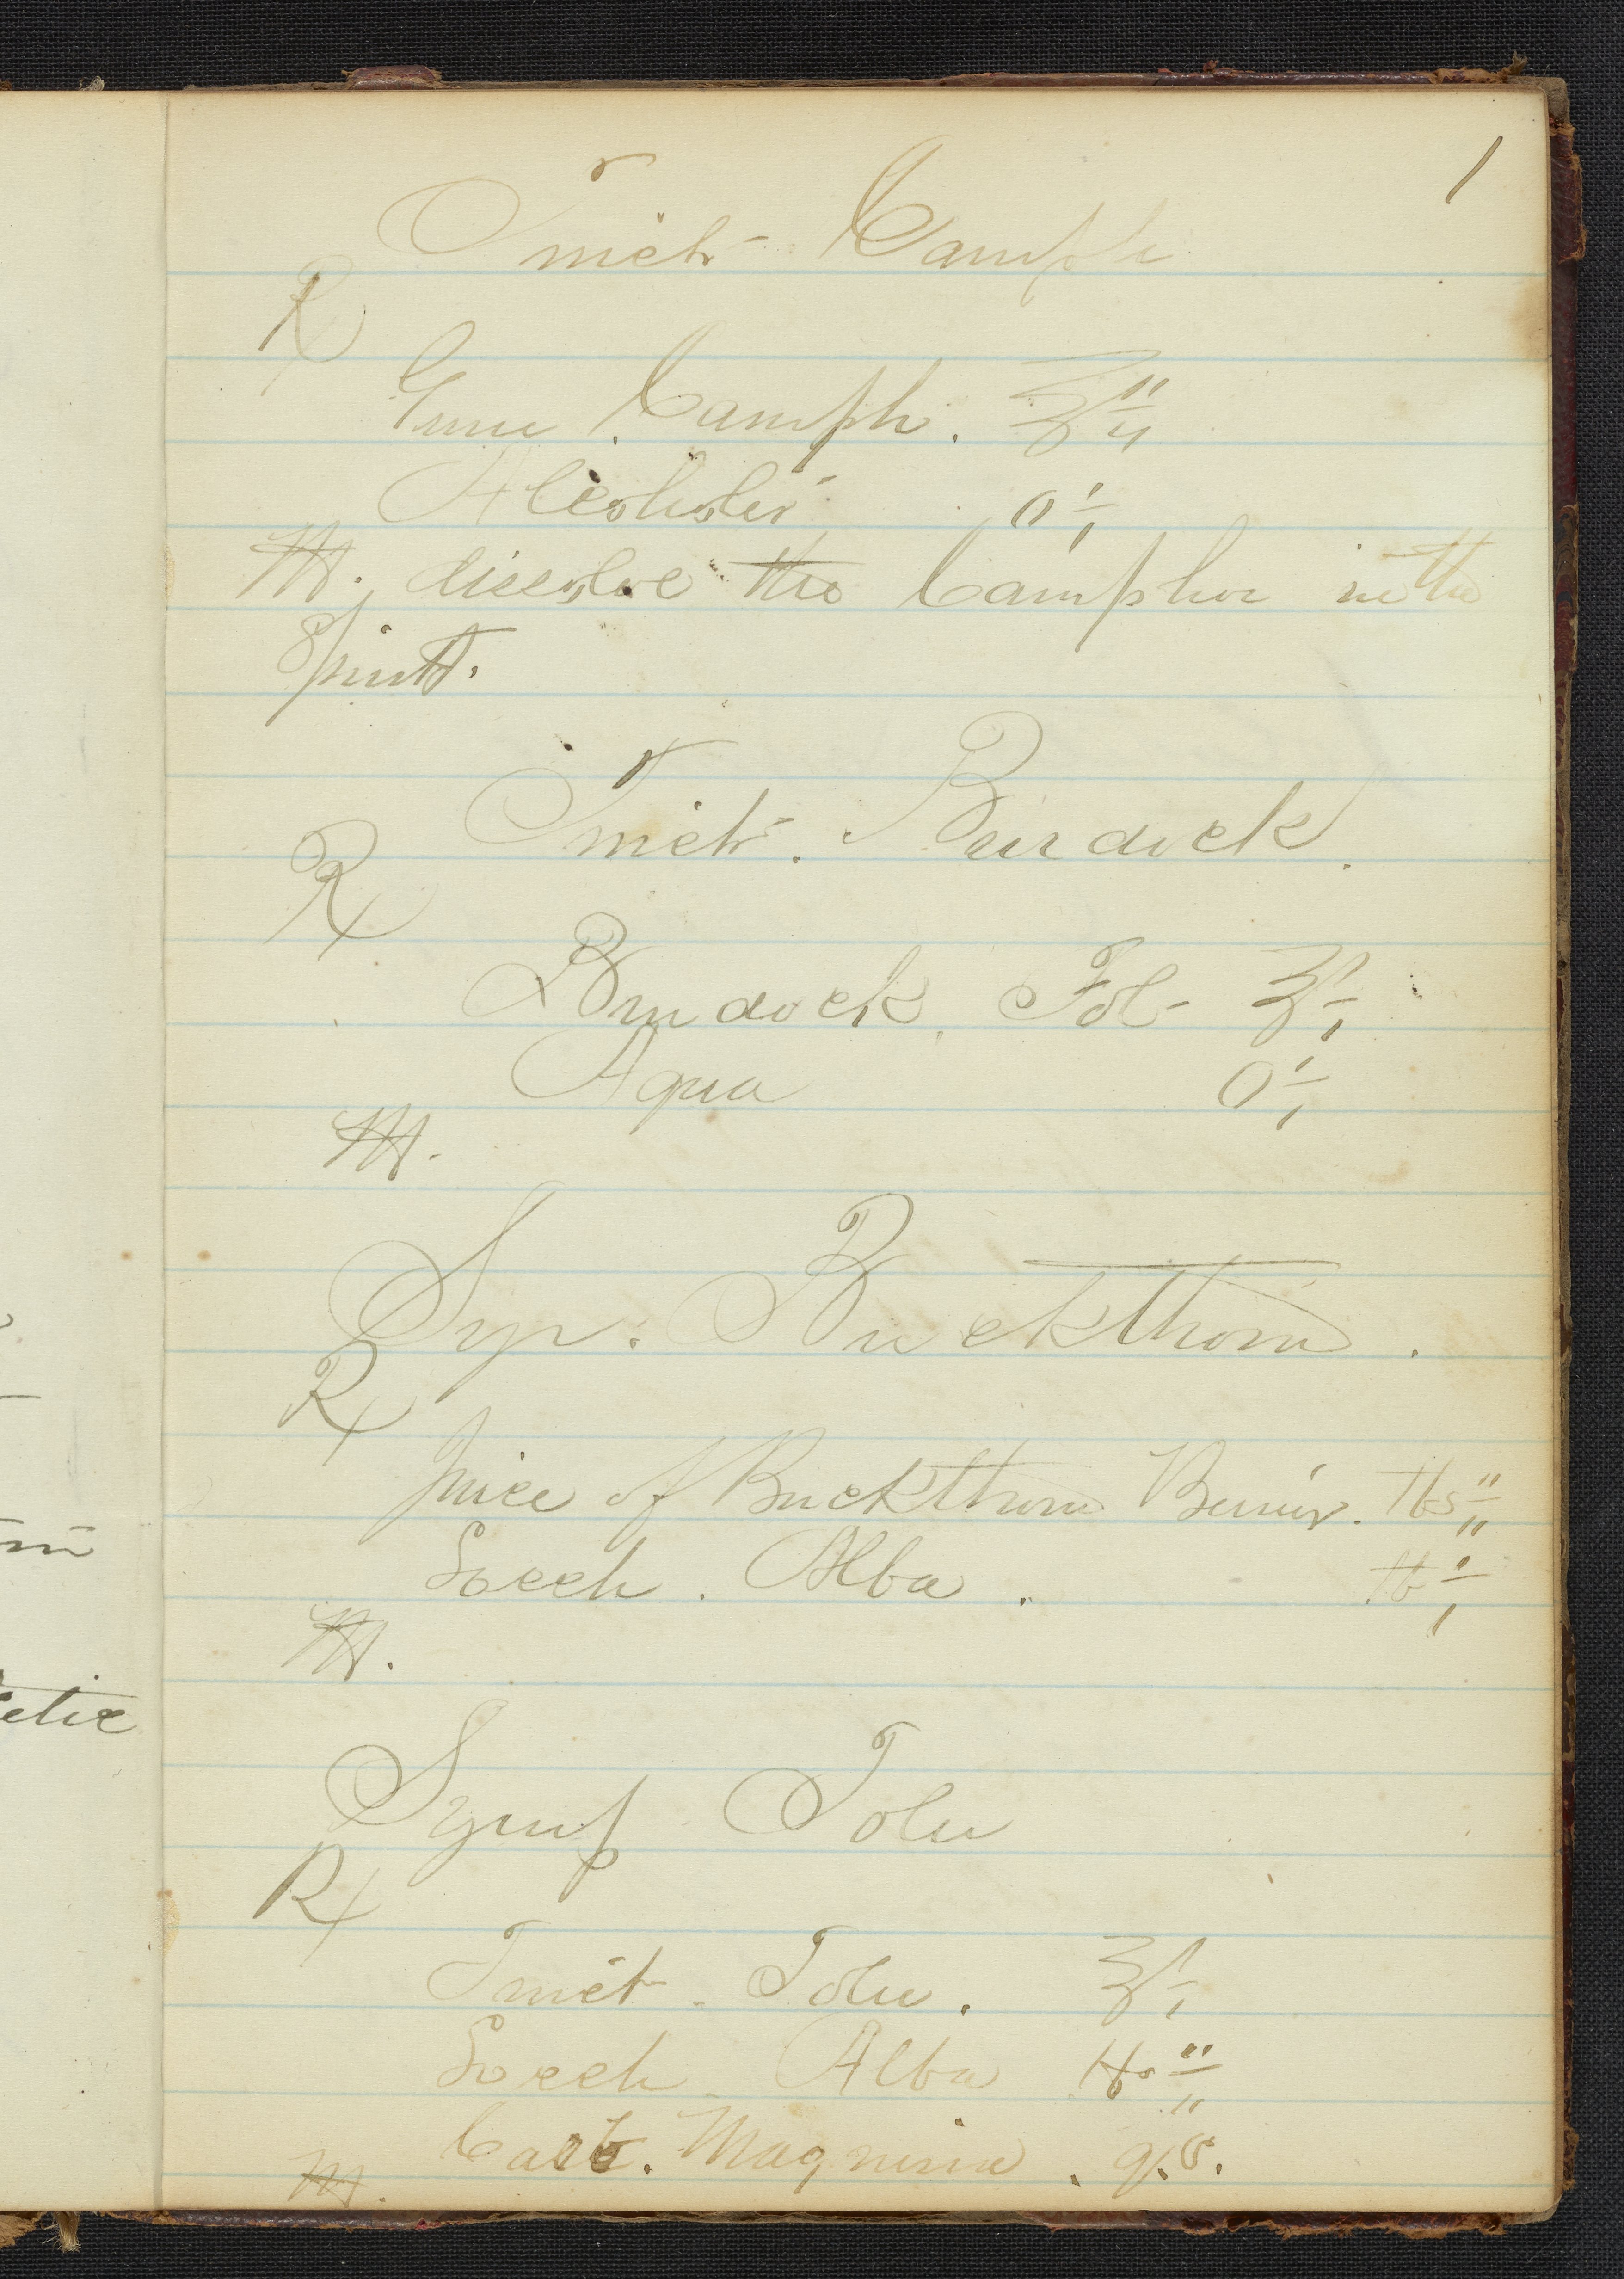 1
Tinct- Camph
℞
Gum Camph. ℥ ii
Alcoholis O i
M. dissolve the Camphor in the
Spirit.
Tinct. Burdock.
℞
Burdock Fol- ℥ i
Aqua O i
M.
Syr. Buckthorn.
℞
Juice of Buckthorn Berries. lbs ii
Sacch. Alba. lb i
M.
Syrup Tolu
℞
Tinct- Tolu. ℥ i
Sacch- Alba lbs ii
Carb. Magnesia. q.s.
M.
etic